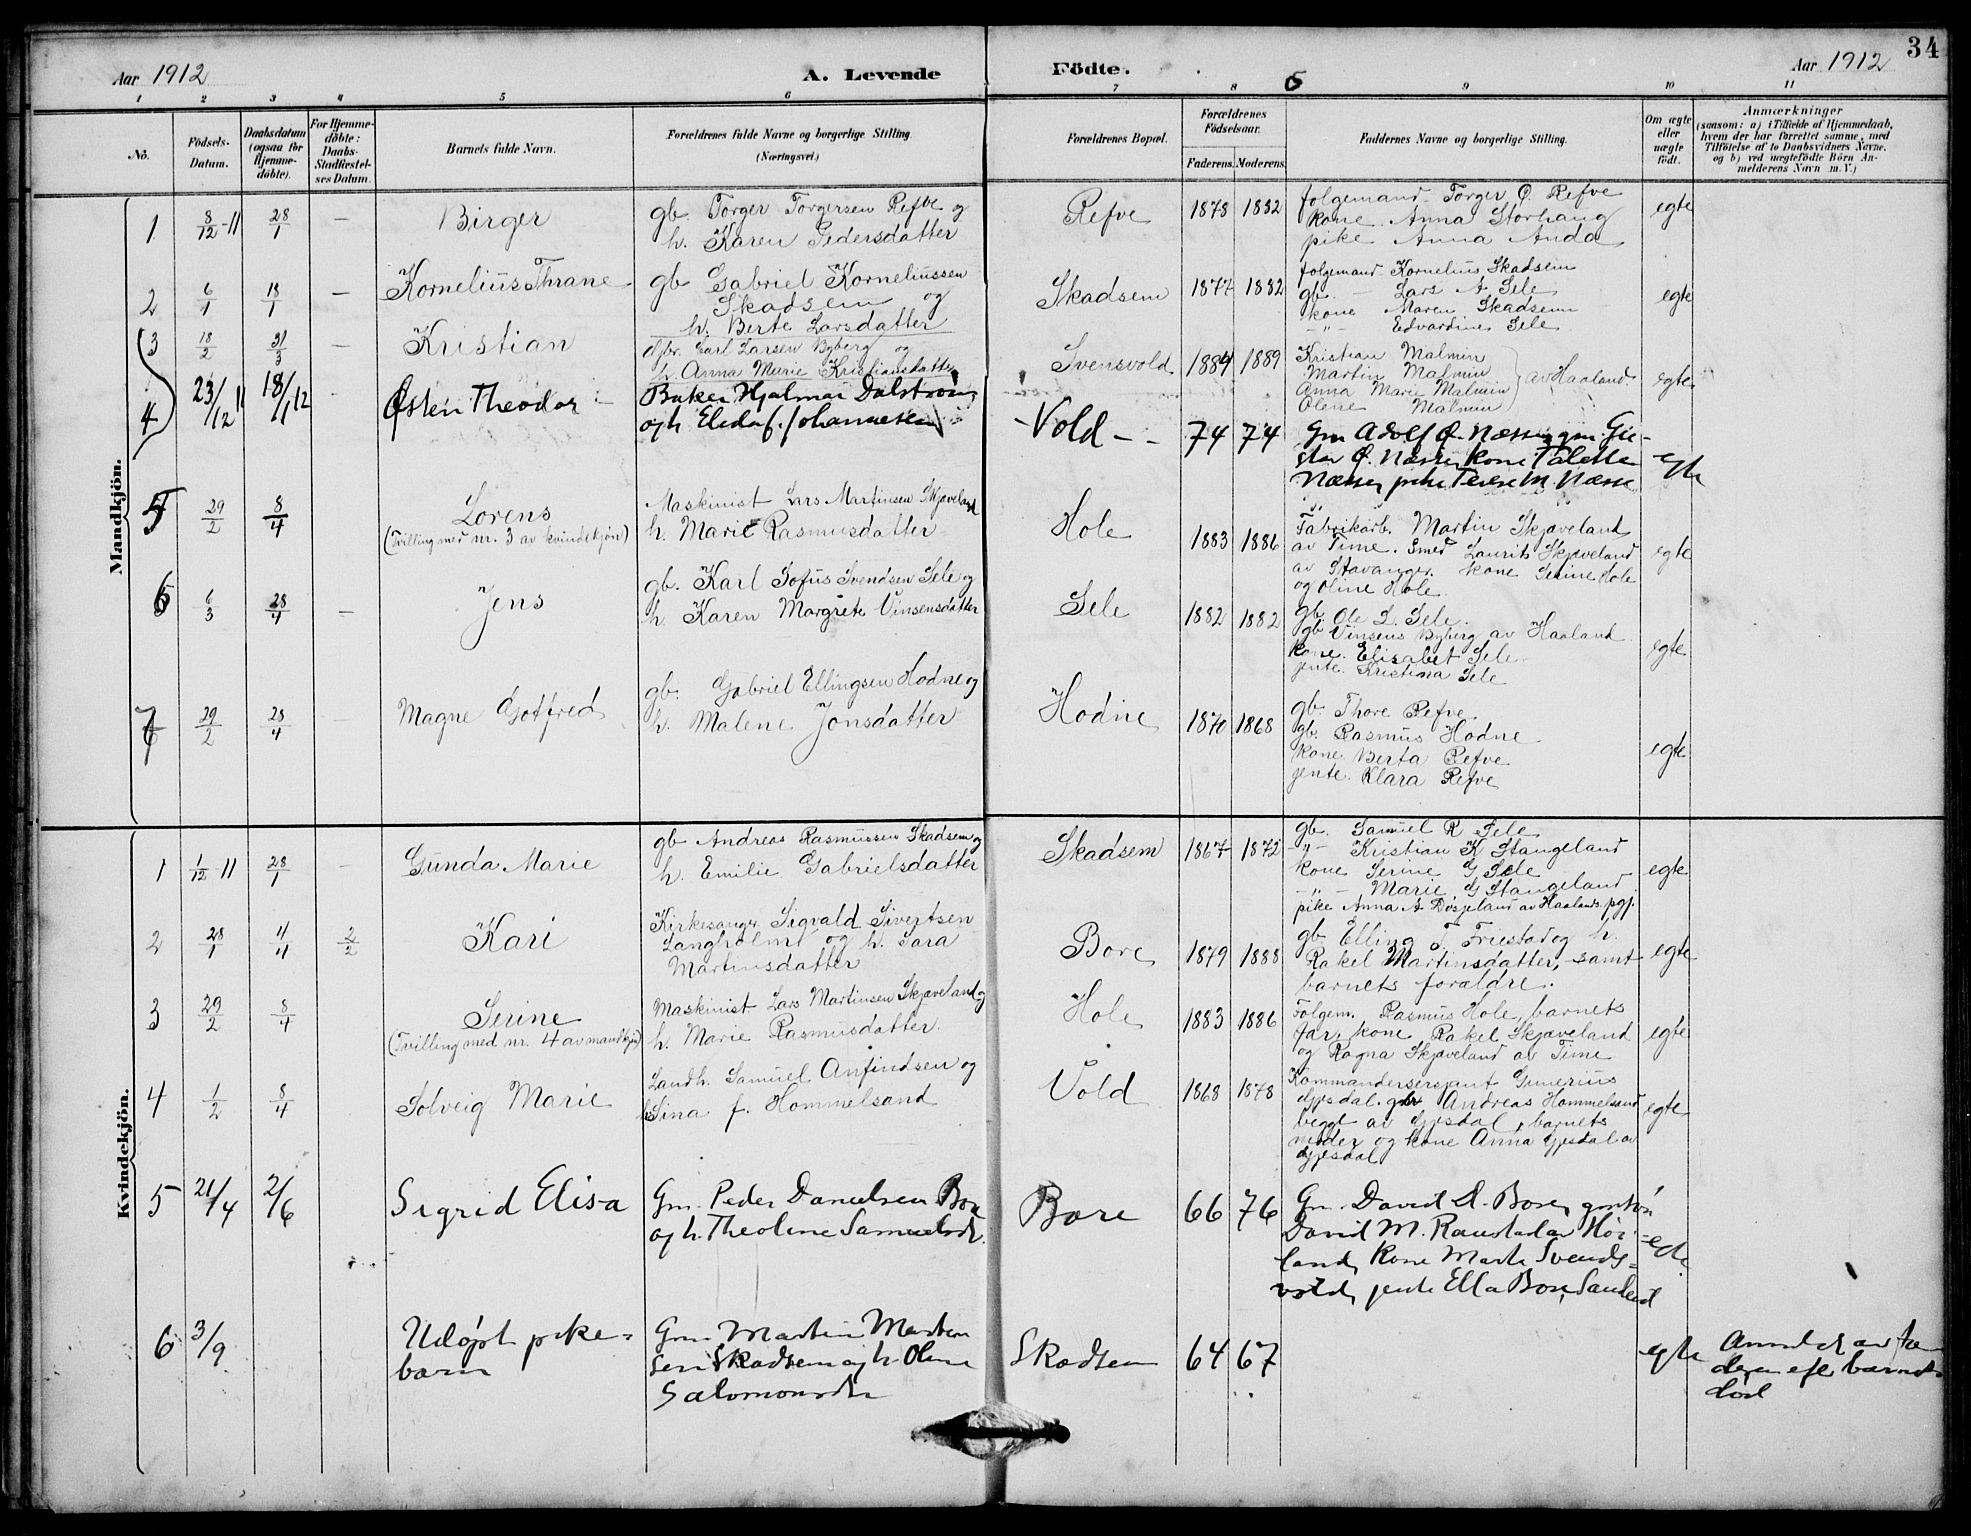 34
Aar 1912
A. Levende
Födte.
Aar 1912
1 2 3 4 5 6 7 8 9 10 11
No.
Födsels-
Datum.
Daabsdatum
(ogsaa for
Hjemme-
döbte).
For Hjemme-
döbte:
Daabs-
Stadfæstel-
ses Datum.
Barnets fulde Navn.
Forældrenes fulde Navne og borgerlige Stilling.
(Næringsvei.)
Forældrenes Bopæl.
Forældrenes
Födselsaar.
Faderens. Moderens.
Faddernes Navne og borgerlige Stilling.
Om ægte
eller
uægte
födt.
Anmærkninger
(saasom: a) i Tilfælde af Hjemmedaab,
hvem der har forrettet samme, med
Tilföielse af to Daabsvidners Navne.
og b) ved uægtefödte Börn An-
melderens Navn m. V.)
Mandkjön.
1 8/12-11 28/1 — Birger
gb. Torger Torgersen Refve og
h. Karen Pedersdatter
Refve 1878 1882
folgemand Torger O. Refve
kone Anna Storhaug
pike Anna Anda
egte
2 6/1 18/1 — Kornelius Thrane
gb Gabriel Korneliussen
Skadsem og
h. Berte Larsdatter
Skadsem 1877 1882
folgemand Kornelius Skadsem
gb. — Lars A Sele
kone Maren Skadsem
-"- Edvardine Sele
egte
3 18/2 31/3 — Kristian
Carl Larsen Byberg og
h. Anna Marie Kristiansdatter
Svensvold 1884 1889
Kristian Malmin
Martin Malmin
Anna Marie Malmin
Olene Malmin
av Haaland
egte
4 23/12 11 18/1 12 Østen Theodor
Baker Hjalmar Dalstrøm
og h. Elida f. Johannesen
Vold 74 74
Gm Adolf Ø. Næsse, gm. Gu-
stav Ø. Næsse, kone Talette
Næsse, pike Terese M. Næsse
egte
5 29/2 8/4 Lorens
(Tvilling med nr. 3 av kvindekjön)
Maskinist Lars Martinsen Skjæveland
h. Marie Rasmusdatter
Hole 1883 1886
Fabrikarb. Martin Skjæveland
av Time. Smed Laurits Skjæveland
av Stavanger. kone Serine Hole
og Oline Hole.
egte
6 6/3 28/4 — Jens
gb. Karl Sofus Svendsen Sele og
h. Karen Margrete Vinsensdatter
Sele 1882 1882
gb. Ole L. Sele.
gb Vinsens Byberg av Haaland
kone. Elisabet Sele
jente. Kristina Sele
egte.
7 29/2 28/4 — Magne Gotfred
gb. Gabriel Ellingsen Hodne og
h. Malene Jonsdatter
Hodne 1870 1868
gb. Thore Refve.
gb. Rasmus Hodne
kone. Berta Refve
jente. Klara Refve
egte
Kvindekjön.
1 1/12-11 28/1 — Gunda Marie
gb Andreas Rasmussen Skadsem og
h. Emilie Gabrielsdatter
Skadsem 1867 1872
gb. Samuel R Sele
-"- Kristian K Stangeland
kone Serine G Sele
-"- Marie G Stangeland
pike Anna A Døsjeland av Haalands pgj.
egte
2 28/1 4/4 2/2 Kari
Kirkesanger Sigvald Sivertsen
Langholm og h. Sara
Martinsdatter
Bore 1879 1888
gb Elling T. Friestad og h.
Rakel Martinsdatter, samt
barnets forældre.
egte
3 29/2 8/4 Serine
(Tvilling med nr. 4 av mandkjön)
Maskinist Lars Martinsen Skjæveland og
h. Marie Rasmusdatter.
Hole 1883 1886
Folgem. Rasmus Hole, barnets
far, kone Rakel Skjæveland
og Ragna Skjæveland av Time
egte
4 1/2 8/4 Solveig Marie
Landh. Samuel Anfindsen og
h. Sina f. Hommelsand
Vold 1868 1878
Kommandersersjant Gunerius
Gjesdal. gbr Andreas Hommelsand
begge av Gjesdal, barnets
moder og kone Anna Gjesdal av
Gjesdal
egte
5 21/4 2/6 Sigrid Elisa
Gm. Peder Danielsen Bore
og h. Theoline Samuelsdr.
Bore 66 76
Gm. David D. Bore,
David M. Raustad av Hør-
land, kone Marta Svends-
vold, jente Ella Bore,
egte
6 3/9 Udøpt pike-
barn
Gm. Martin Marten
sen Skadsem og h. Oline
Salomonsdr
Skadsem 64 67
egte
Anmeldt av fa-
deren efter barnets
död